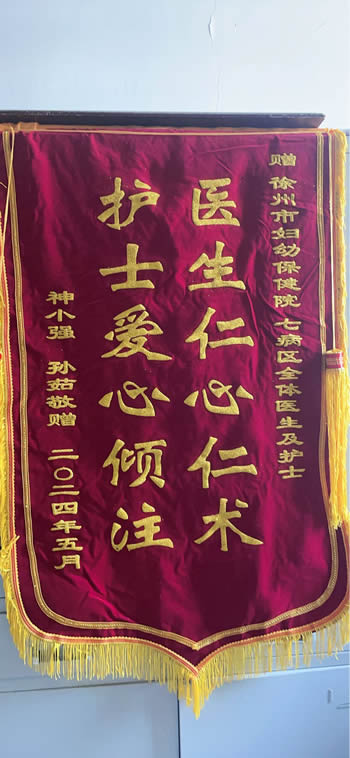 赠 徐州市妇幼保健院 七病区全体医生及护士
医生仁心仁术
护士爱心倾注
神小强 孙茹敬赠 二〇二四年五月